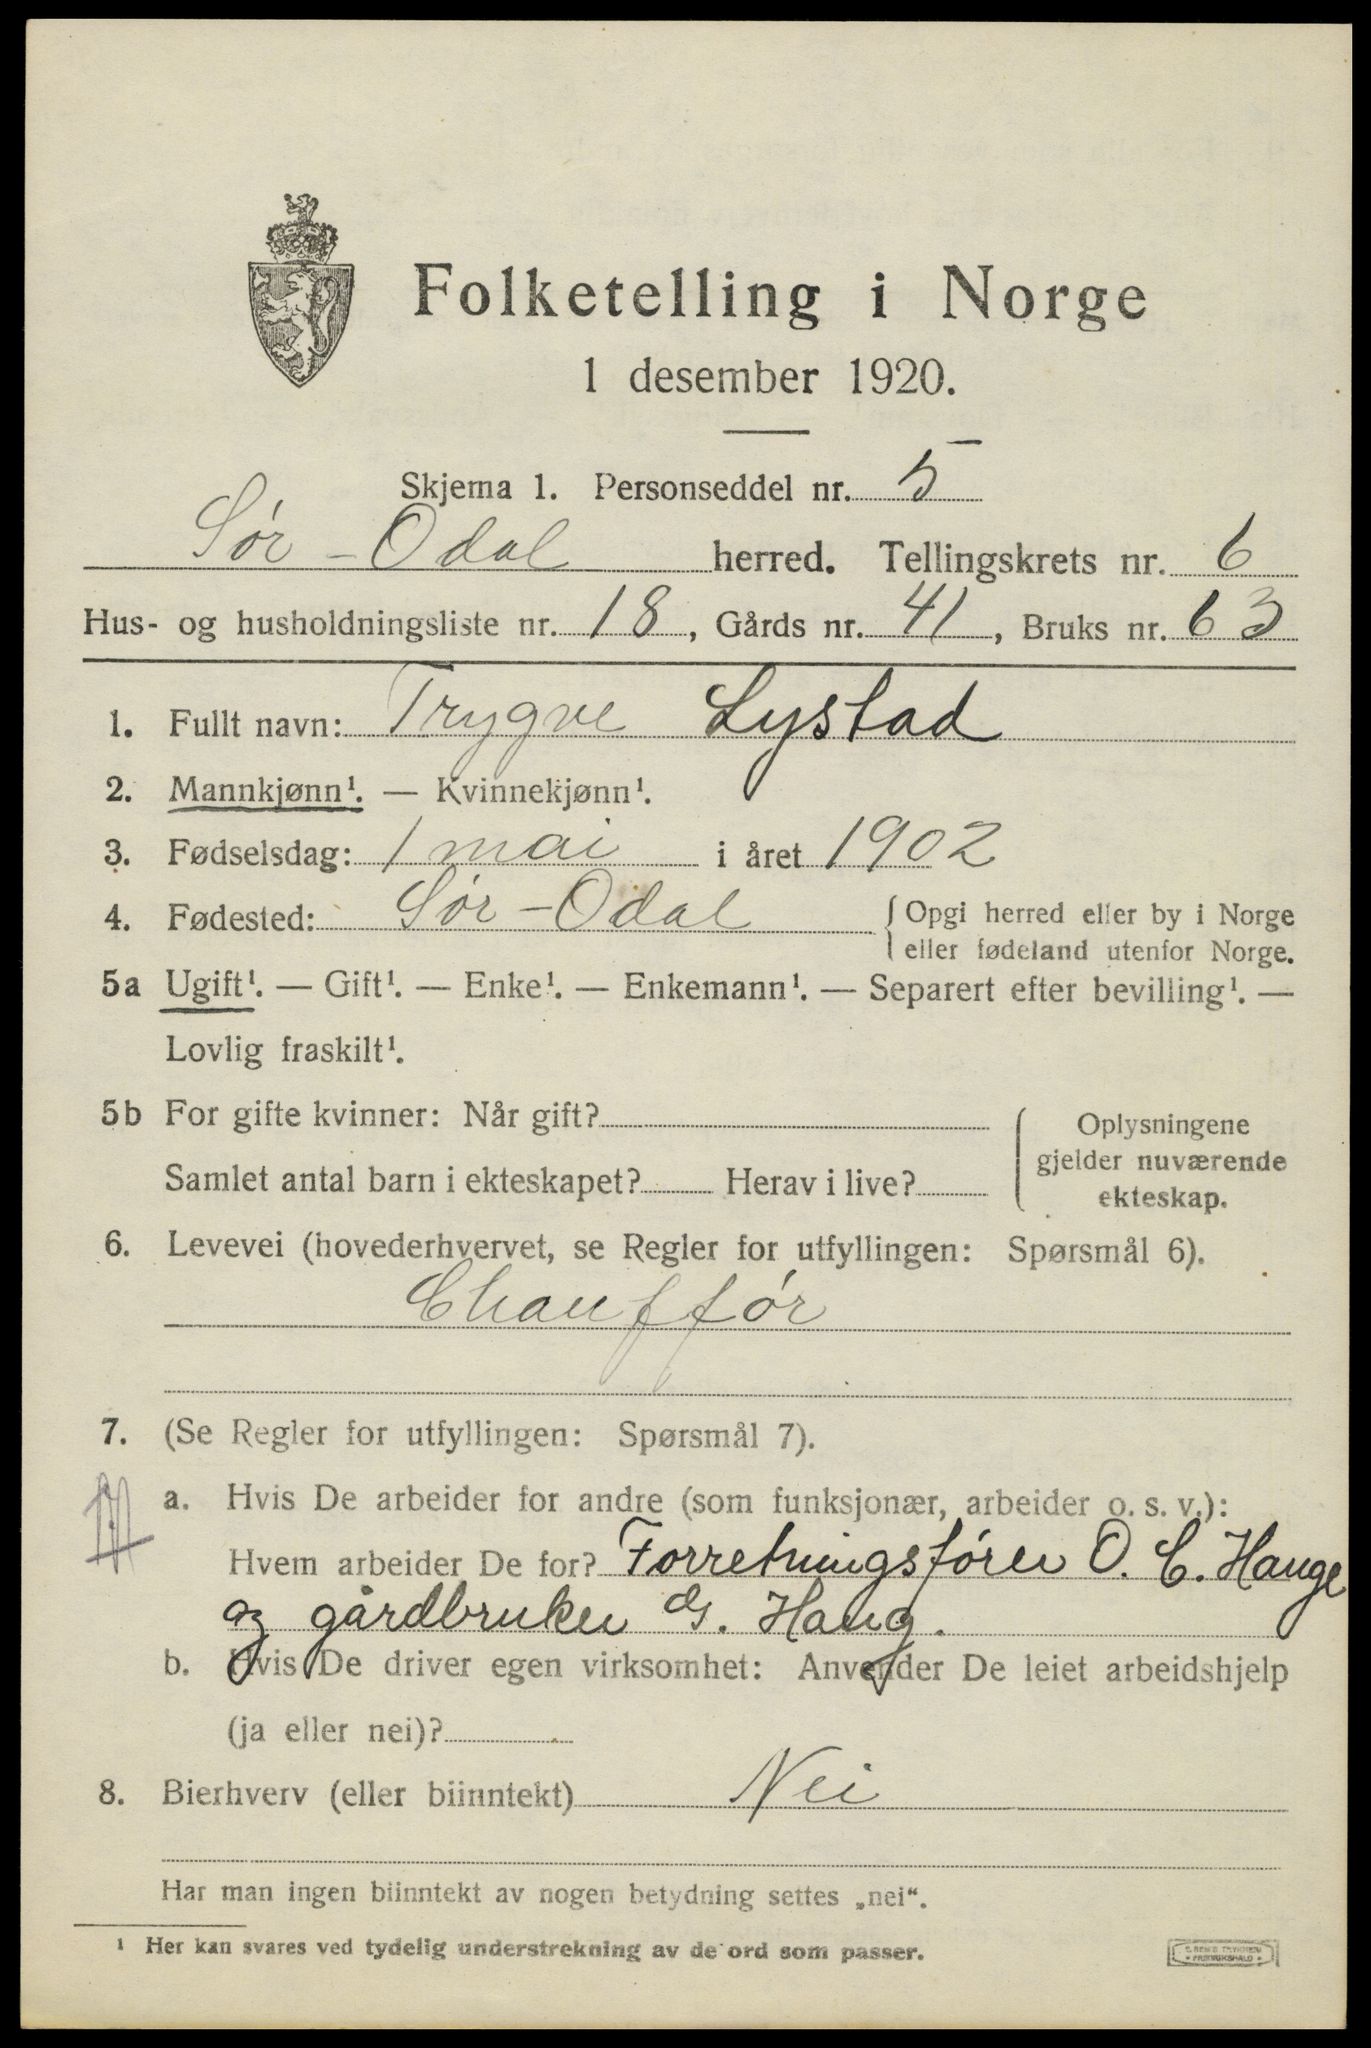 Folketelling i Norge
1 desember 1920.
Skjema 1. Personseddel nr. 5
Sør-Odal herred. Tellingskrets nr. 6
Hus- og husholdningsliste nr. 18, Gårds nr. 41, Bruks nr. 63
1. Fullt navn: Trygve Lystad
2. Mannkjønn¹. — Kvinnekjønn¹.
3. Fødselsdag: 1 mai i året 1902
4. Fødested: Sør-Odal { Opgi herred eller by i Norge
eller fødeland utenfor Norge.
5a Ugift¹. — Gift¹. — Enke¹. — Enkemann¹. — Separert efter bevilling¹. —
Lovlig fraskilt¹.
5b For gifte kvinner: Når gift?
Samlet antal barn i ekteskapet? Herav i live?
Oplysningene
gjelder nuværende
ekteskap.
6. Levevei (hovederhvervet, se Regler for utfyllingen: Spørsmål 6).
Chauffør
7. (Se Regler for utfyllingen: Spørsmål 7).
a. Hvis De arbeider for andre (som funksjonær, arbeider o. s. v.):
Hvem arbeider De for? Forretningsfører O. C. Hauge
og gårdbruker G. Haug.
b. Hvis De driver egen virksomhet: Anvender De leiet arbeidshjelp
(ja eller nei)?
8. Bierhverv (eller biinntekt) Nei
Har man ingen biinntekt av nogen betydning settes „nei“.
¹ Her kan svares ved tydelig understrekning av de ord som passer.